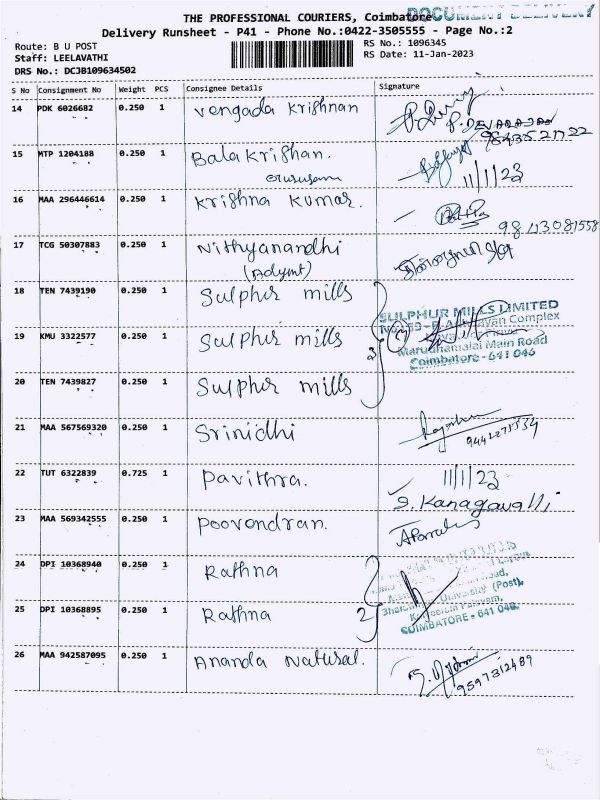 DOCUMENT DELIVERY
THE PROFESSIONAL COURIERS, Coimbatore
Delivery Runsheet - P41 - Phone No.:0422-3505555 - Page No.:2
Route: B U POST
RS No.: 1096345
Staff: LEELAVATHI
RS Date: 11-Jan-2023
DRS No.: DCJB109634502
S No Consignment No Weight PCS Consignee Details Signature
14 PDK 6026682 0.250 1 Vengada Krishnan
P. DEVARAJAN
9843521722
15 MTP 1204188 0.250 1 Balakrishan.
11/1/23
16 MAA 296446614 0.250 1 Krishna Kumar.
17 TCG 50307883 0.250 1 Nithyanandhi
18 TEN 7439190 0.250 1 Sulphur mills
SULPHUR MILLS LIMITED
19 KMU 3322577 0.250 1 Sulphur mills
3
Complex
Marudhamalai Main Road
Coimbatore - 641 046
20 TEN 7439827 0.250 1 Sulphur mills
21 MAA 567569320 0.250 1 Srinidhi
22 TUT 6322839 0.725 1 Pavithra.
11/1/23
S. Kanagavalli
23 MAA 569342555 0.250 1 Poovendran.
24 DPI 10368940 0.250 1 Rathna
Road,
University (Post),
25 DPI 10368895 0.250 1 Rathna
2
COIMBATORE - 641 046.
26 MAA 942587095 0.250 1 Ananda Natusal.
9597312489